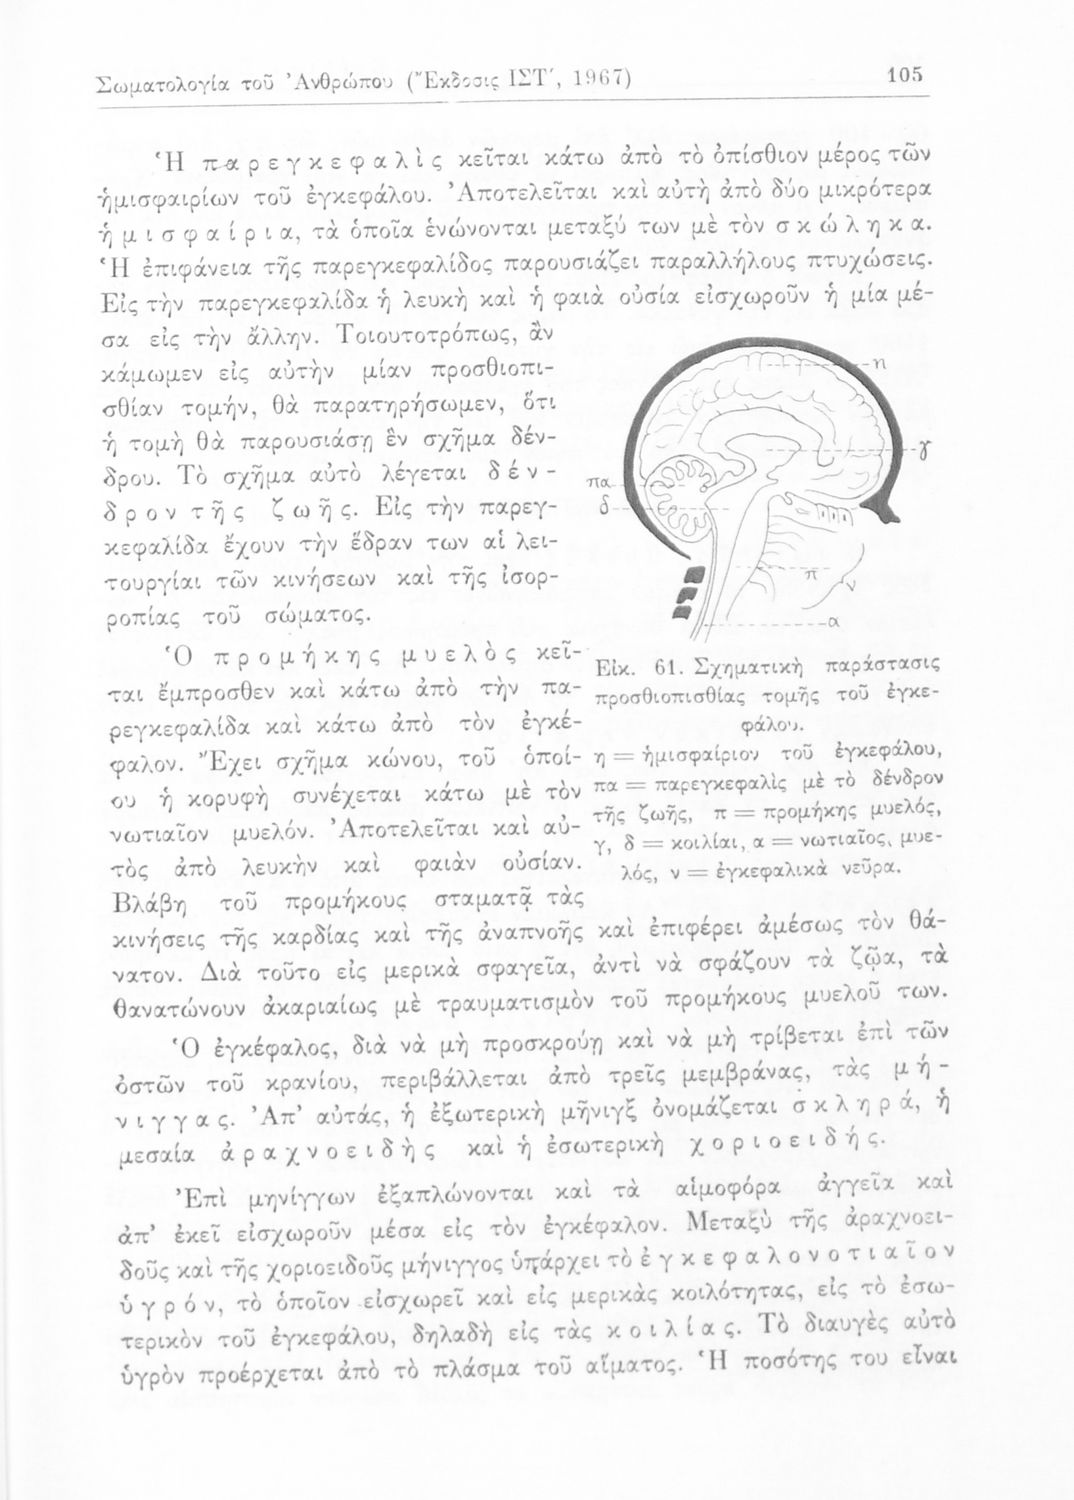 Σωματολογία τοῦ Ἀνθρώπου (Ἔκδοσις ΙΣΤ΄, 1967) 105
Ἡ παρεγκεφαλὶς κεῖται κάτω ἀπὸ τὸ ὀπίσθιον μέρος τῶν
ἡμισφαιρίων τοῦ ἐγκεφάλου. Ἀποτελεῖται καὶ αὐτὴ ἀπὸ δύο μικρότερα
ἡμισφαίρια, τὰ ὁποῖα ἑνώνονται μεταξύ των μὲ τὸν σκώληκα.
Ἡ ἐπιφάνεια τῆς παρεγκεφαλίδος παρουσιάζει παραλλήλους πτυχώσεις.
Εἰς τὴν παρεγκεφαλίδα ἡ λευκὴ καὶ ἡ φαιὰ οὐσία εἰσχωροῦν ἡ μία μέ-
σα εἰς τὴν ἄλλην. Τοιουτοτρόπως, ἂν
κάμωμεν εἰς αὐτὴν μίαν προσθιοπι-
σθίαν τομήν, θὰ παρατηρήσωμεν, ὅτι
ἡ τομὴ θὰ παρουσιάσῃ ἓν σχῆμα δέν-
δρου. Τὸ σχῆμα αὐτὸ λέγεται δέν-
δρον τῆς ζωῆς. Εἰς τὴν παρεγ-
κεφαλίδα ἔχουν τὴν ἕδραν των αἱ λει-
τουργίαι τῶν κινήσεων καὶ τῆς ἰσορ-
ροπίας τοῦ σώματος.
Ὁ προμήκης μυελὸς κεῖ-
ται ἔμπροσθεν καὶ κάτω ἀπὸ τὴν πα-
ρεγκεφαλίδα καὶ κάτω ἀπὸ τὸν ἐγκέ-
φαλον. Ἔχει σχῆμα κώνου, τοῦ ὁποί-
ου ἡ κορυφὴ συνέχεται κάτω μὲ τὸν
νωτιαῖον μυελόν. Ἀποτελεῖται καὶ αὐ-
τὸς ἀπὸ λευκὴν καὶ φαιὰν οὐσίαν.
Βλάβη τοῦ προμήκους σταματᾷ τὰς
η
γ
πα
δ
π
ν
α
Εἰκ. 61. Σχηματικὴ παράστασις
προσθιοπισθίας τομῆς τοῦ ἐγκε-
φάλου.
η = ἡμισφαίριον τοῦ ἐγκεφάλου,
πα = παρεγκεφαλὶς μὲ τὸ δένδρον
τῆς ζωῆς, π = προμήκης μυελός,
γ, δ = κοιλίαι, α = νωτιαῖος, μυε-
λός, ν = ἐγκεφαλικὰ νεῦρα.
κινήσεις τῆς καρδίας καὶ τῆς ἀναπνοῆς καὶ ἐπιφέρει ἀμέσως τὸν θά-
νατον. Διὰ τοῦτο εἰς μερικὰ σφαγεῖα, ἀντὶ νὰ σφάζουν τὰ ζῷα, τὰ
θανατώνουν ἀκαριαίως μὲ τραυματισμὸν τοῦ προμήκους μυελοῦ των.
Ὁ ἐγκέφαλος, διὰ νὰ μὴ προσκρούῃ καὶ νὰ μὴ τρίβεται ἐπὶ τῶν
ὀστῶν τοῦ κρανίου, περιβάλλεται ἀπὸ τρεῖς μεμβράνας, τὰς μή-
νιγγας. Ἀπ’ αὐτάς, ἡ ἐξωτερικὴ μῆνιγξ ὀνομάζεται σκληρά, ἡ
μεσαία ἀραχνοειδὴς καὶ ἡ ἐσωτερικὴ χοριοειδής.
Ἐπὶ μηνίγγων ἐξαπλώνονται καὶ τὰ αἱμοφόρα ἀγγεῖα καὶ
ἀπ’ ἐκεῖ εἰσχωροῦν μέσα εἰς τὸν ἐγκέφαλον. Μεταξὺ τῆς ἀραχνοει-
δοῦς καὶ τῆς χοριοειδοῦς μήνιγγος ὑπάρχει τὸ ἐγκεφαλονοτιαῖον
ὑγρόν, τὸ ὁποῖον εἰσχωρεῖ καὶ εἰς μερικὰς κοιλότητας, εἰς τὸ ἐσω-
τερικὸν τοῦ ἐγκεφάλου, δηλαδὴ εἰς τὰς κοιλίας. Τὸ διαυγὲς αὐτὸ
ὑγρὸν προέρχεται ἀπὸ τὸ πλάσμα τοῦ αἵματος. Ἡ ποσότης του εἶναι